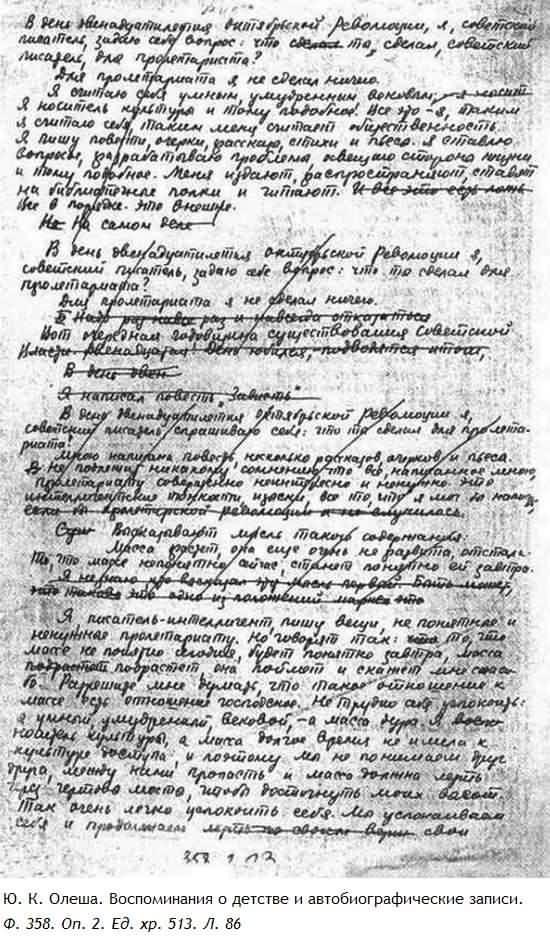 В день двенадцатилетия октябрьской Революции, я, советский
писатель, задаю себе вопрос: что ты сделал, советский
писатель, для пролетариата?
Для пролетариата я не сделал ничего.
Я считаю себя умным, умудренным вековой;
Я носитель культуры и тому подобное! Все это - я, таким
я считаю себя, таким меня считает общественность.
Я пишу повести, очерки, рассказы, стихи и пьесы. Я ставлю
вопросы, разрабатываю проблемы, освещаю стороны жизни
и тому подобное. Меня издают, распространяют, ставят
на библиотечные полки и читают. И все это есть ложь
Все в порядке. Это внешне.
Не На самом деле
В день двенадцатилетия октябрьской Революции я,
советский писатель, задаю себе вопрос: что ты сделал для
пролетариата?
Для пролетариата я не сделал ничего.
Надо раз навсегда раз и навсегда отказаться
Вот очередная годовщина существования Советской
Власти двенадцатая! День юбилея, - подводятся итоги,
В день двен
Я написал повесть "Зависть"
В день двенадцатилетия октябрьской Революции я,
советский писатель спрашиваю себя: что ты сделал для пролета-
риата?
Мною написана повесть, несколько рассказов, очерков и пьеса.
не подлежит никакому сомнению, что всё, написанное мною,
пролетариату совершенно неинтересно и ненужно. Это
интеллигентские тонкости, изыски, все то, что я мог бы
если бы пролетарской революции и не случилось.
Высказывают мысль такого содержания:
Масса растет, она еще очень не развита, отстала-
то, что массе непонятно сейчас, станет понятно ей завтра.
Я не знаю кто высказал эту мысль первый. Быть может,
это одно из положений марксизма что
Я, писатель-интеллигент, пишу вещи, не понятные и
ненужные пролетариату. Но говорят так: что то, что
массе не понятно сегодня, будет понятно завтра, масса
подрастет подрастет, она поймет и скажет мне спаси-
бо. Разрешите мне думать, что такое отношение к
массе есть отношение господское. Не трудно себя успокоить:
я умный, умудренный, вековой, - а масса дура. Я
носитель культуры, а масса долгое время не имела к
культуре доступа, и поэтому мы не понимаем друг
друга, между нами пропасть и масса должна переть
через чертово место, чтоб достигнуть моих высот.
Так очень легко успокоить себя. Мы успокаиваем
себя и продолжаем переть свои
358 1 13
Ю. К. Олеша. Воспоминания о детстве и автобиографические записи.
Ф. 358. Оп. 2. Ед. хр. 513. Л. 86